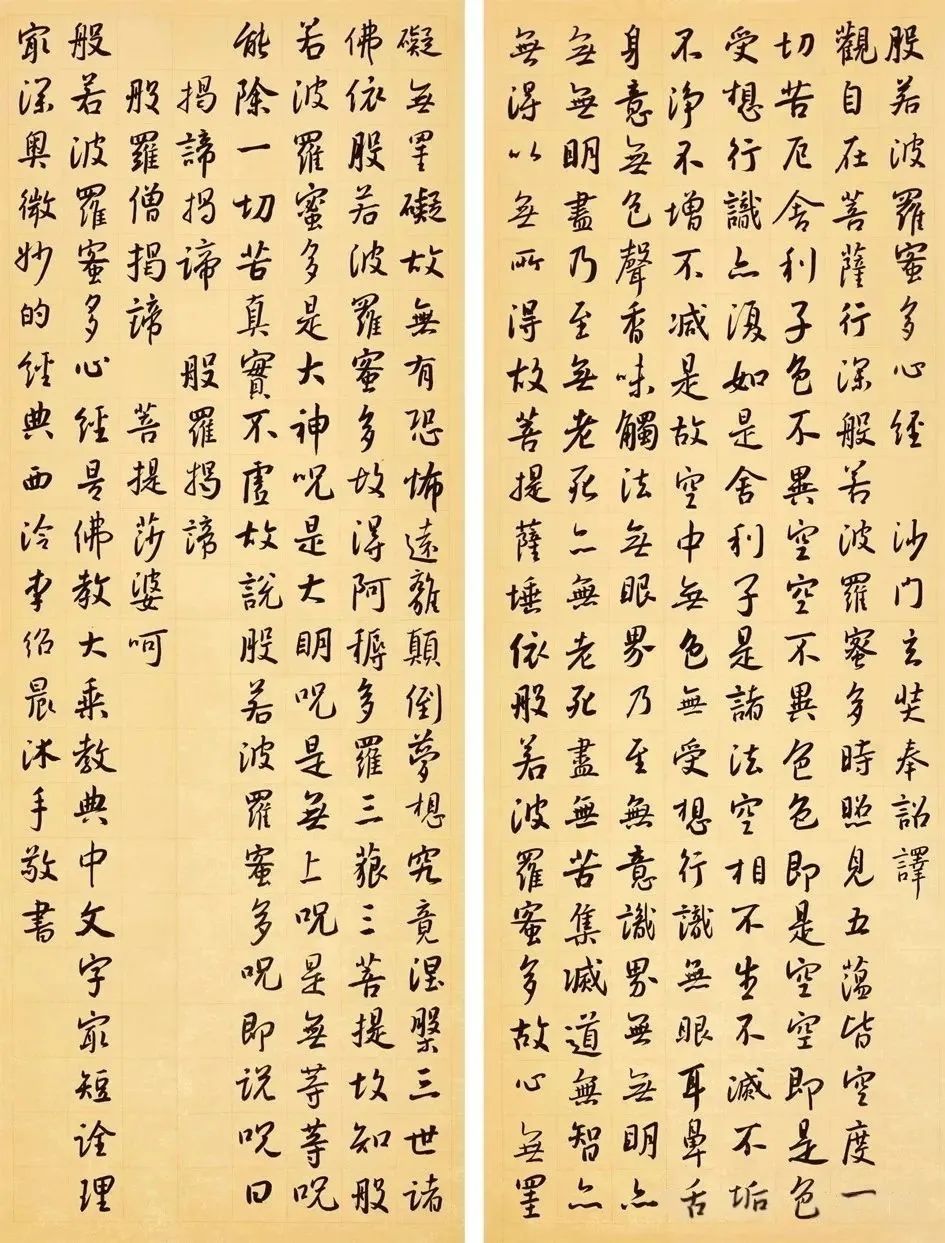 般若波羅蜜多心經 沙門玄奘奉詔譯
觀自在菩薩行深般若波羅蜜多時照見五蘊皆空度一
切苦厄舍利子色不異空空不異色色即是空空即是色
受想行識亦復如是舍利子是諸法空相不生不滅不垢
不淨不增不減是故空中無色無受想行識無眼耳鼻舌
身意無色聲香味觸法無眼界乃至無意識界無無明亦
無無明盡乃至無老死亦無老死盡無苦集滅道無智亦
無得以無所得故菩提薩埵依般若波羅蜜多故心無罣
礙無罣礙故無有恐怖遠離顛倒夢想究竟涅槃三世諸
佛依般若波羅蜜多故得阿耨多羅三藐三菩提故知般
若波羅蜜多是大神呪是大明呪是無上呪是無等等呪
能除一切苦真實不虛故說般若波羅蜜多呪即說呪曰
揭諦揭諦 般羅揭諦
般羅僧揭諦 菩提莎婆呵
般若波羅蜜多心經是佛教大乘教典中文字最短詮理
最深奧微妙的經典西泠李紹晨沐手敬書